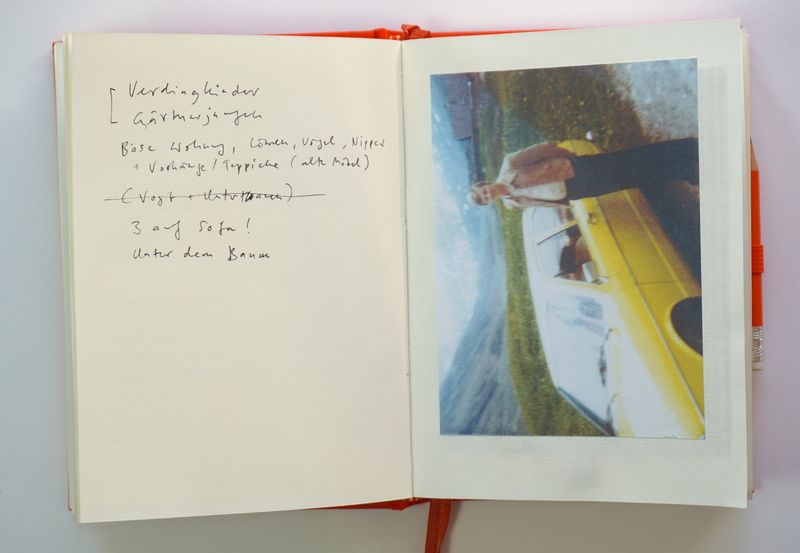 Verdingkinder
Gärtnerjungen
Böse Wohnung, Löwen, Vögel, Nipper
+ Vorhänge / Teppiche (alte Möbel)
(Vogt +
3 auf Sofa!
Unter dem Baum